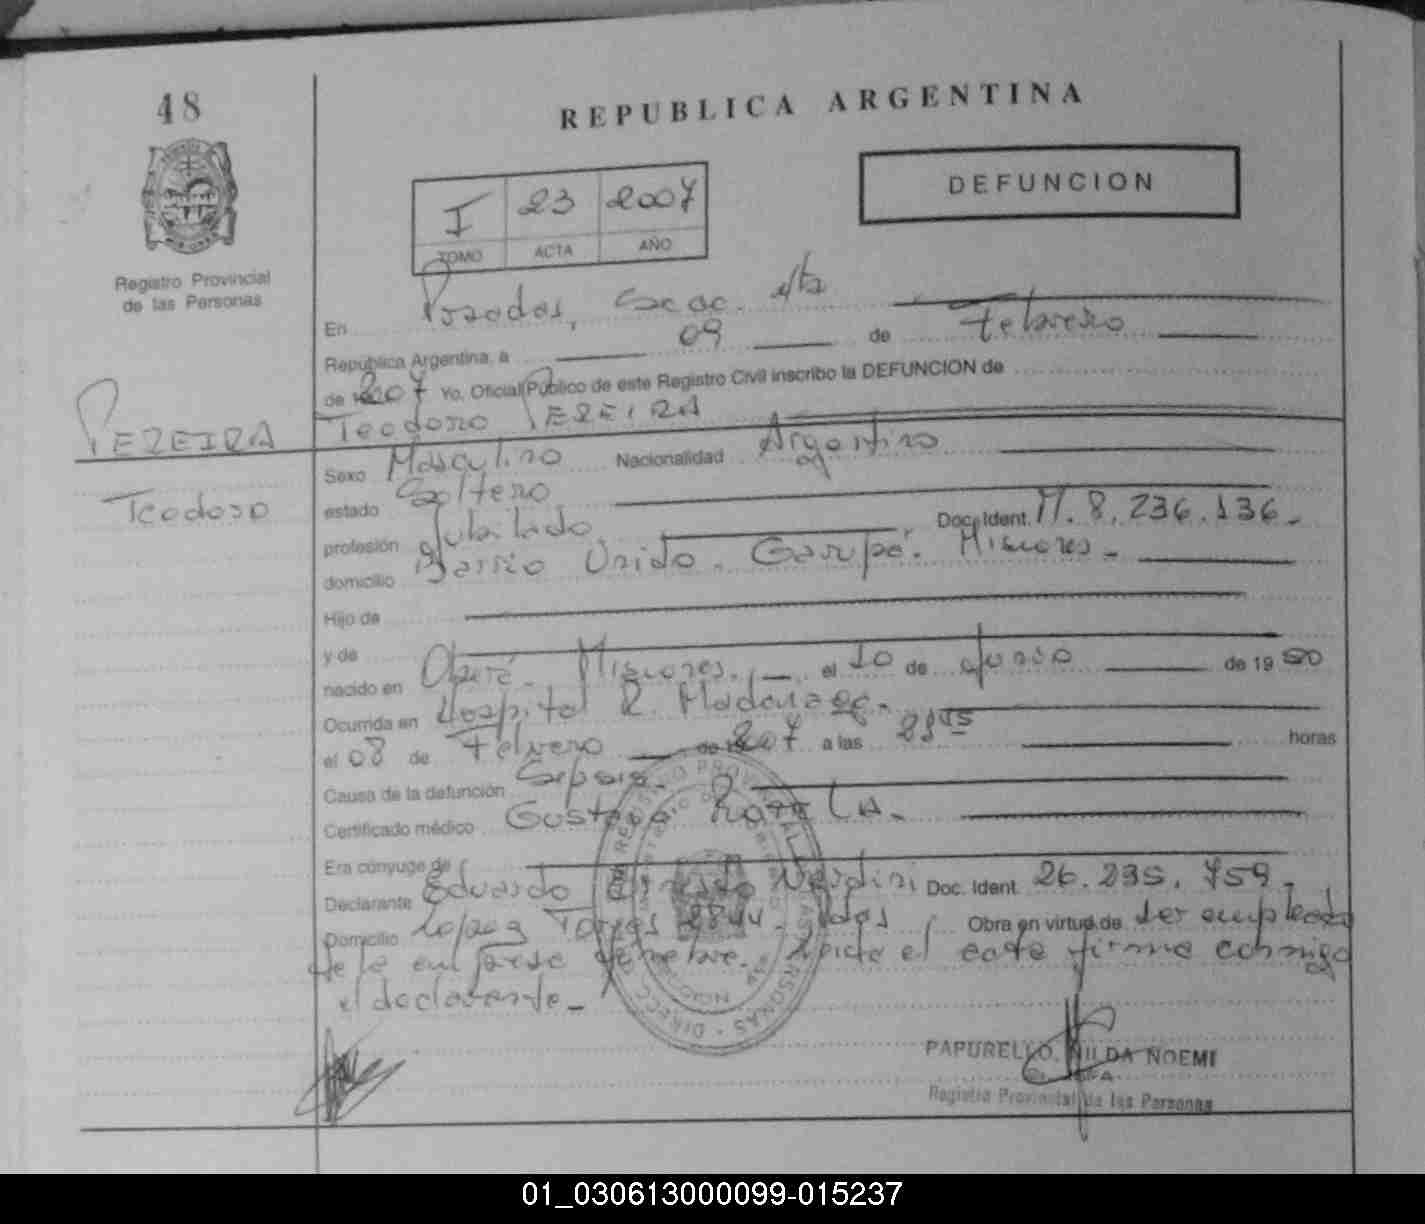 48
REPUBLICA ARGENTINA
DEFUNCION
I 23 2007
TOMO ACTA AÑO
Registro Provincial
de las Personas
En Posadas, Secc. 4ta
República Argentina, a 09 de Febrero
de 2007 Yo, Oficial Público de este Registro Civil inscribo la DEFUNCION de
PEREIRA
Teodoro PEREIRA
Teodoro
Sexo Masculino Nacionalidad Argentino
estado Soltero
profesión Jubilado Doc. Ident. M. 8.236.136.
domicilio Barrio Unido. Garupá. Misiones.
Hijo de
y de
nacido en Oberá. Misiones. el 10 de Junio de 19
Ocurrida en Hospital R. Madariaga.
el 08 de Febrero de 2007 a las horas
Causa de la defunción Sepsis.
Certificado médico Gustavo
Era cónyuge de
Declarante Eduardo Ernesto Nardini Doc. Ident. 26.235.759.
Domicilio Lopez Torres 2844. Pdas Obra en virtud de ser empleado
de la empresa fúnebre. Leída el acta firma conmigo
el declarante.
PAPURELLO, NILDA NOEMI
Registro Provincial de las Personas
01_030613000099-015237